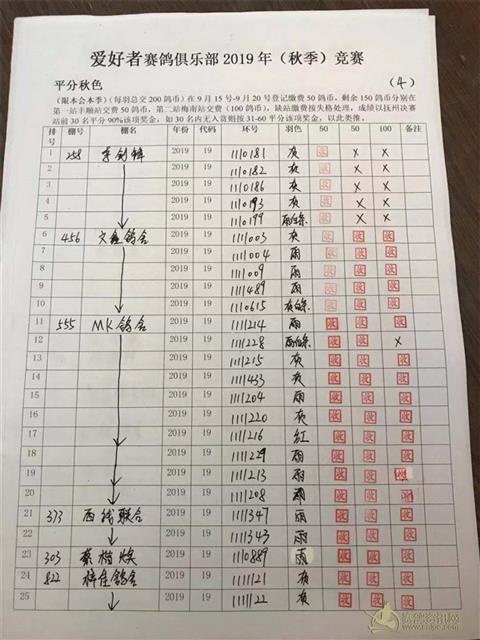 爱好者赛鸽俱乐部2019年（秋季）竞赛
平分秋色 （4）
（限本会本季）（每羽总交200鸽币）在9月15号-9月20号登记缴费50鸽币，剩余150鸽币分别在
第一站丰顺站交费50鸽币，第二站梅南站交费（100鸽币），缺站缴费按失格处理，成绩以抚州决赛
站前30名平分90%该项奖金，如30名内无入赏则按31-60平分该项奖金，以此类推。
排号 棚号 棚名 年份 代码 环号 羽色 50 50 100 备注
1 258 2019 19 1110181 灰 X X
2 2019 19 1110182 灰 X X
3 2019 19 1110186 灰 X X
4 2019 19 1110193 灰 X X
5 2019 19 1110199 雨白条 X X
6 456 文鑫鸽舍 2019 19 1111003 灰
7 2019 19 1111004 雨
8 2019 19 1111009 雨
9 2019 19 1111489 雨
10 2019 19 1110615 灰白条
11 555 MK鸽舍 2019 19 1111214 雨
12 2019 19 1111228 雨白条 X
13 2019 19 1111215 灰
14 2019 19 1111433 灰
15 2019 19 1111204 雨
16 2019 19 1111220 灰
17 2019 19 1111216 红
18 2019 19 1111229 雨
19 2019 19 1111213 雨
20 2019 19 1111208 雨
21 373 西线联合 2019 19 1111347 雨
22 2019 19 1111343 雨
23 303 2019 19 1110889 雨
24 822 梓佳鸽舍 2019 19 1111121 灰
25 2019 19 1111122 灰